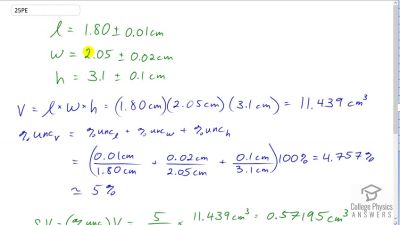 25PE
l = 1.80 ± 0.01cm
w = 2.05 ± 0.02cm
h = 3.1 ± 0.1cm
V = l * w * h = (1.80cm)(2.05cm)(3.1cm) = 11.439cm³
% unc_V = % unc_l + % unc_w + % unc_h
= (0.01cm/1.80cm + 0.02cm/2.05cm + 0.1cm/3.1cm) 100% = 4.757%
≃ 5%
δV = (% unc) V = 5/ * 11.439cm³ = 0.57195cm³
College Physics
ANSWERS